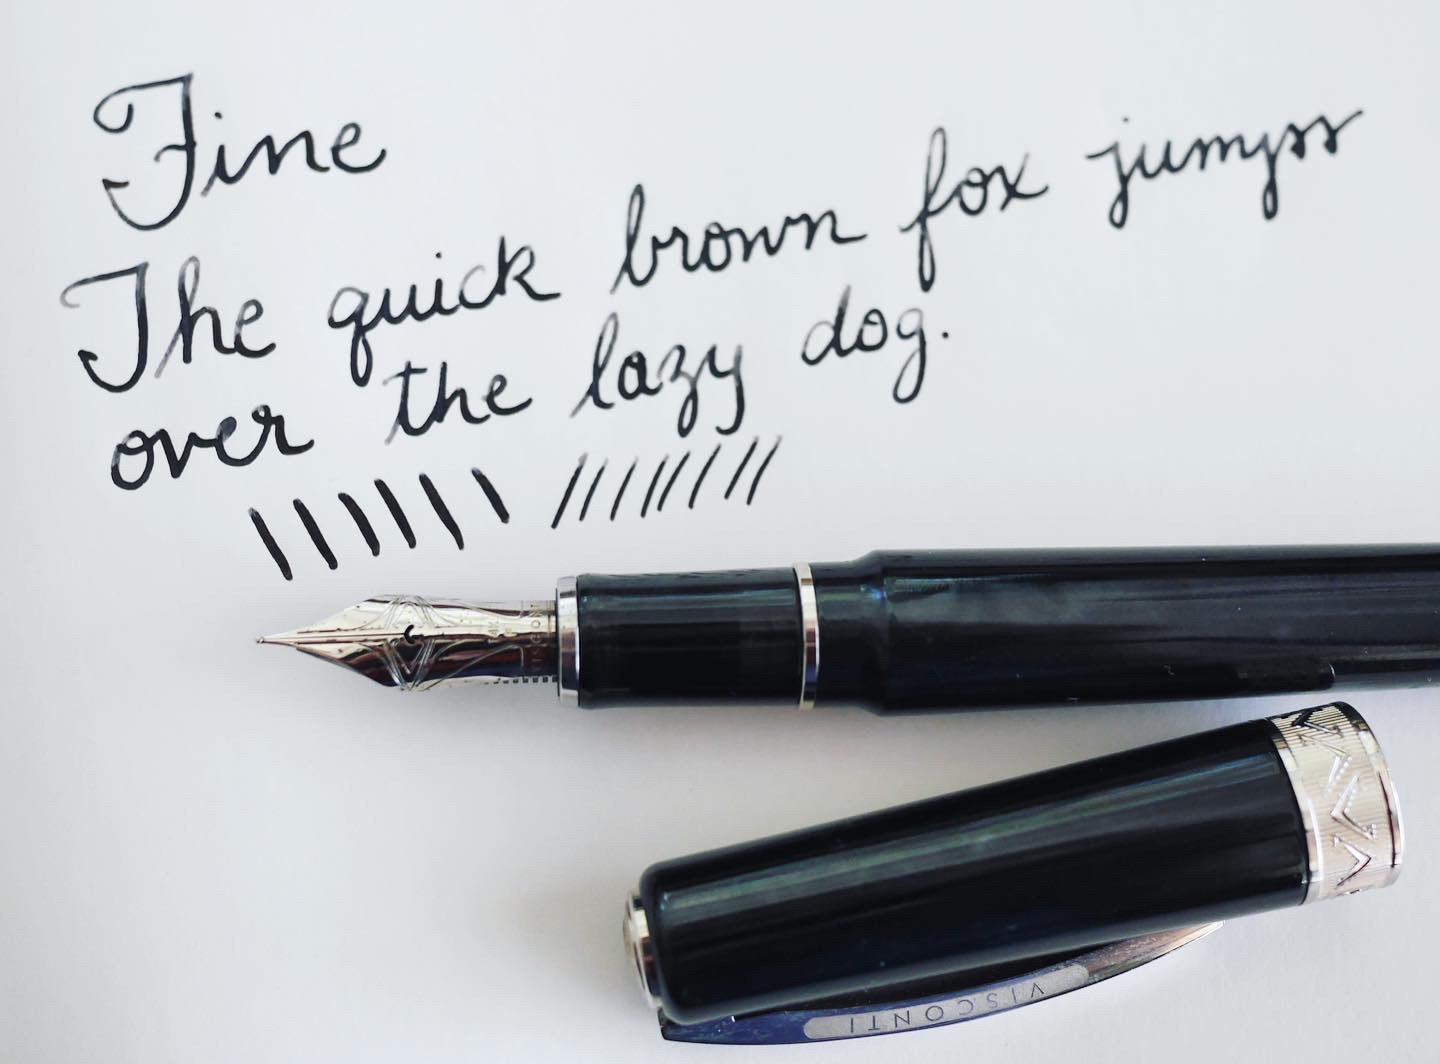 Fine
The quick brown fox jumps
over the lazy dog.
VISCONTI